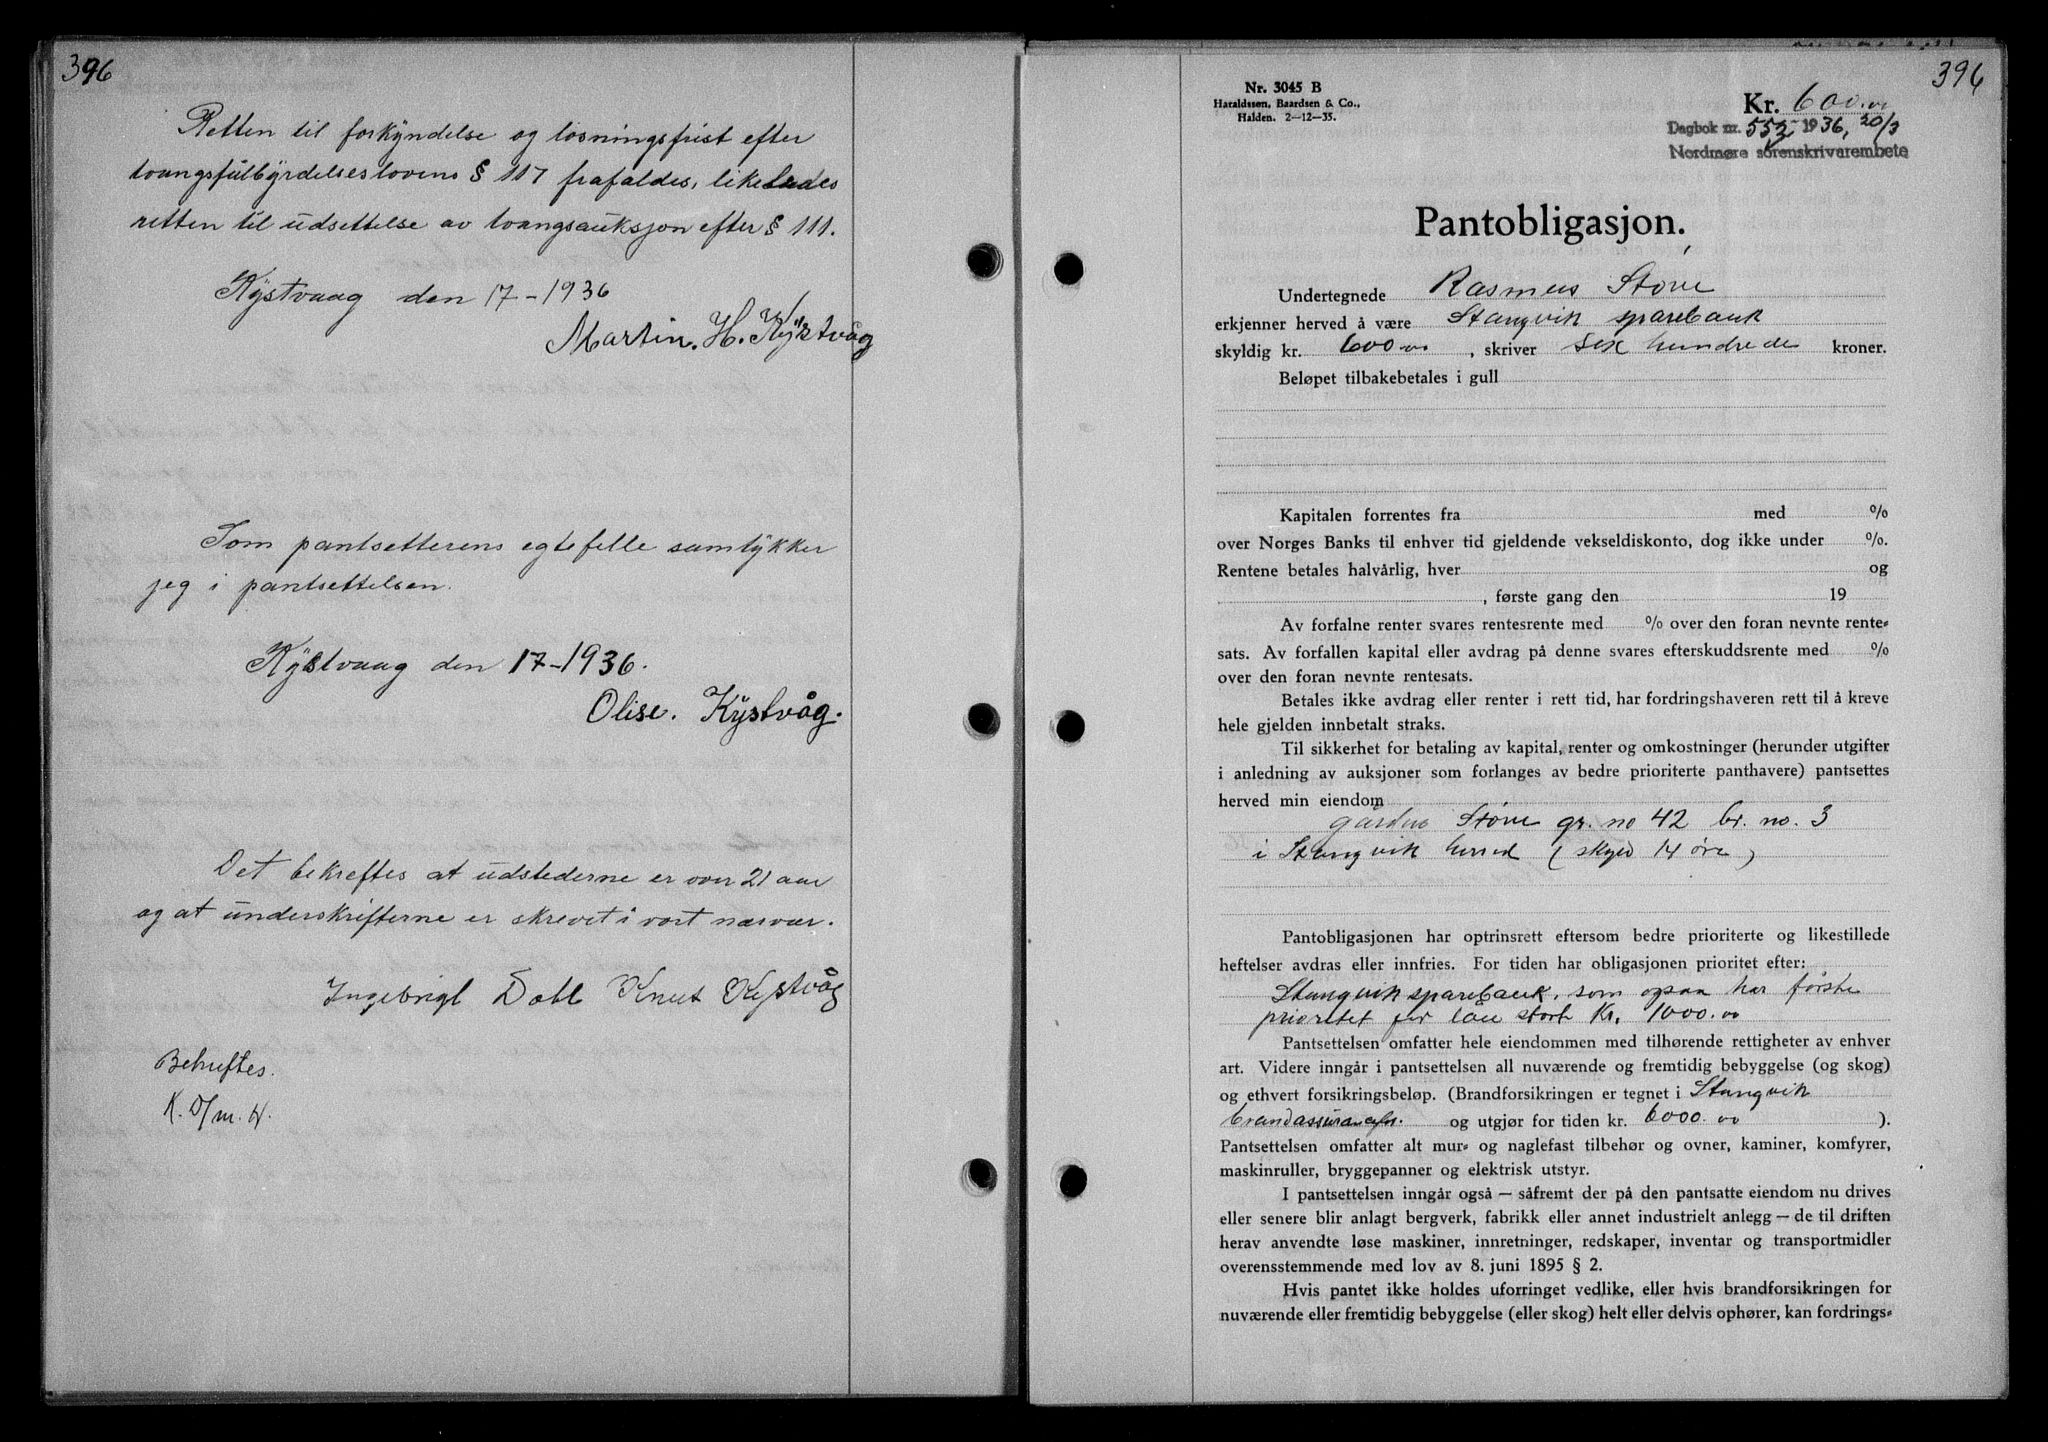 396
Retten til forkyndelse og løsningsfrist efter
tvangsfulbyrdelseslovens § 117 frafaldes, likeledes
retten til udsettelse av tvangsauksjon efter § 111.
Kystvaag den 17-1936
Martin. H. Kystvåg
Som pantsetterens egtefelle samtykker
jeg i pantsettelsen.
Kystvaag den 17-1936.
Olise. Kystvåg.
Det bekreftes at udstederne er over 21 aar
og at underskrifterne er skrevet i vort nærvær.
Ingebrigt Dahl Knut Kystvåg
Bekreftes.
396
Nr. 3045 B
Haraldssøn, Baardsen & Co.,
Halden. 2-12-35.
Kr. 600.00
Dagbok nr. 552 - 1936, 20/3
Nordmøre sorenskrivarembete
Pantobligasjon.
Undertegnede Rasmus Støve
erkjenner herved å være Stangvik sparebank
skyldig kr. 600 00, skriver Seks hundrede kroner.
Beløpet tilbakebetales i gull
Kapitalen forrentes fra med %
over Norges Banks til enhver tid gjeldende vekseldiskonto, dog ikke under %.
Rentene betales halvårlig, hver og
, første gang den 19
Av forfalne renter svares rentesrente med % over den foran nevnte rente-
sats. Av forfallen kapital eller avdrag på denne svares efterskuddsrente med %
over den foran nevnte rentesats.
Betales ikke avdrag eller renter i rett tid, har fordringshaveren rett til å kreve
hele gjelden innbetalt straks.
Til sikkerhet for betaling av kapital, renter og omkostninger (herunder utgifter
i anledning av auksjoner som forlanges av bedre prioriterte panthavere) pantsettes
herved min eiendom
gården Støve gr. no 42 br. no. 3
i Stangvik herred (skyld 14 øre)
Pantobligasjonen har optrinsrett eftersom bedre prioriterte og likestillede
heftelser avdras eller innfries. For tiden har obligasjonen prioritet efter:
Stangvik sparebank, som ogsaa har første
prioritet for lån stort Kr. 1000.00
Pantsettelsen omfatter hele eiendommen med tilhørende rettigheter av enhver
art. Videre inngår i pantsettelsen all nuværende og fremtidig bebyggelse (og skog)
og ethvert forsikringsbeløp. (Brandforsikringen er tegnet i Stangvik
brandassuransefor. og utgjør for tiden kr. 6000.00 ).
Pantsettelsen omfatter alt mur- og naglefast tilbehør og ovner, kaminer, komfyrer,
maskinruller, bryggepanner og elektrisk utstyr.
I pantsettelsen inngår også — såfremt der på den pantsatte eiendom nu drives
eller senere blir anlagt bergverk, fabrikk eller annet industrielt anlegg — de til driften
herav anvendte løse maskiner, innretninger, redskaper, inventar og transportmidler
overensstemmende med lov av 8. juni 1895 § 2.
Hvis pantet ikke holdes uforringet vedlike, eller hvis brandforsikringen for
nuværende eller fremtidig bebyggelse (eller skog) helt eller delvis ophører, kan fordrings-